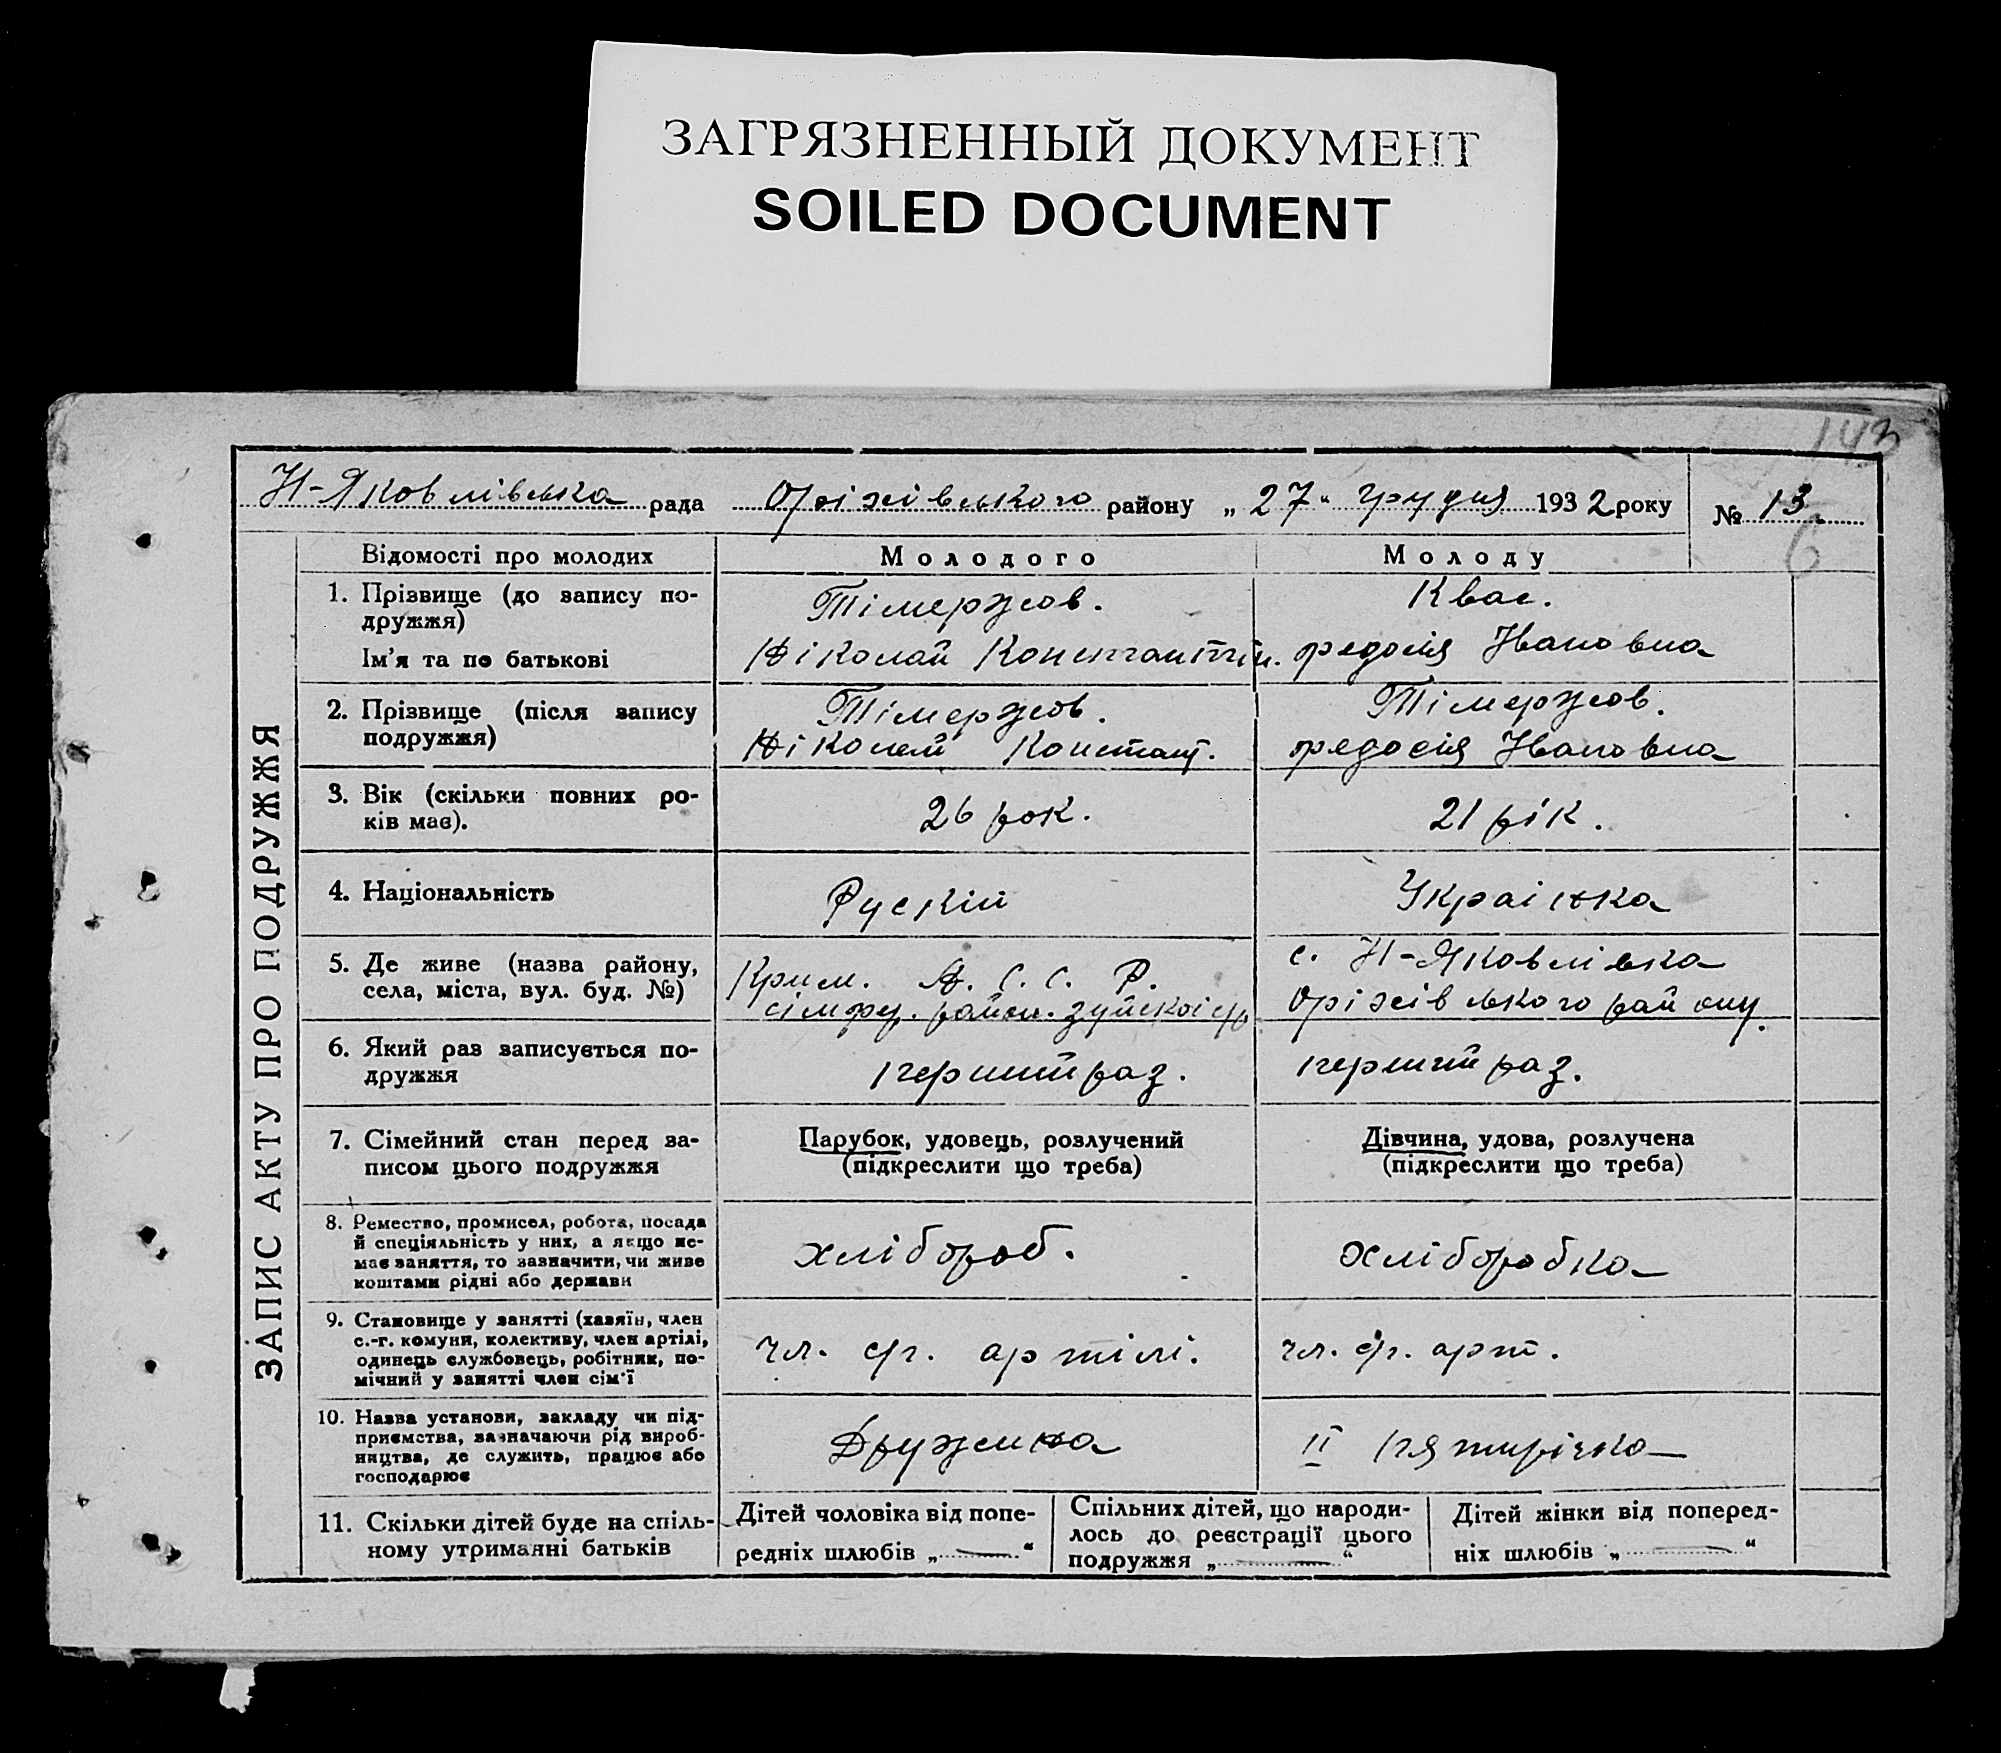 ЗАГРЯЗНЕННЫЙ ДОКУМЕНТ
SOILED DOCUMENT
143
Н-Яковлівська рада Оріхівського району „27“ грудня 1932 року № 13
6
ЗАПИС АКТУ ПРО ПОДРУЖЖЯ
Відомості про молодих Молодого Молоду
1. Прізвище (до запису по-
дружжя)
Тімержов. Квас.
Ім'я та по батькові Ніколай Константін. федосія Івановна
2. Прізвище (після запису
подружжя)
Тімержов. Тімержов.
Ніколай Констант. федосія Івановна
3. Вік (скільки повних ро-
ків має).
26 рок. 21 рік.
4. Національність Рускій Українка
5. Де живе (назва району,
села, міста, вул. буд. №)
Крим. А. С. С. Р.
сімфер. район. зуйскої с/р
с. Н-Яковлівка
Оріхівського району.
6. Який раз записується по-
дружжя
перший раз. перший раз.
7. Сімейний стан перед за-
писом цього подружжя
Парубок, удовець, розлучений
(підкреслити що треба)
Дівчина, удова, розлучена
(підкреслити що треба)
8. Ремество, промисел, робота, посада
й спеціяльність у них, а якщо не-
має заняття, то зазначити, чи живе
коштами рідні або держави
хлібороб. хліборобка
9. Становище у занятті (хазяїн, член
с.-г. комуни, колективу, член артілі,
одинець службовець, робітник, по-
мічний у занятті член сім'ї
чл. с/г. артілі. чл. с/г. арт.
10. Назва установи, закладу чи під-
приємства, зазначаючи рід вироб-
ництва, де служить, працює або
господарює
Дружина II пятирічка
11. Скільки дітей буде на спіль-
ному утриманні батьків
Дітей чоловіка від попе-
редніх шлюбів „—“
Спільних дітей, що народи-
лось до реєстрації цього
подружжя „—“
Дітей жінки від поперед-
ніх шлюбів „—“